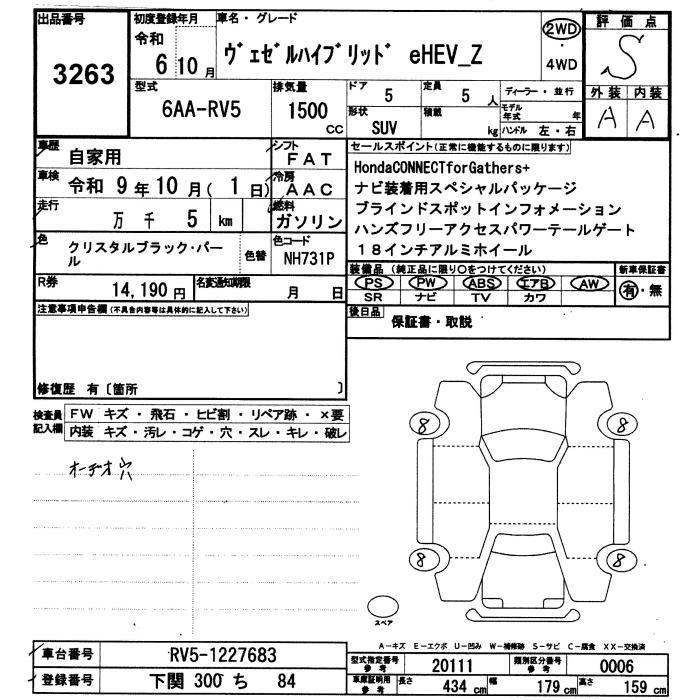 出品番号
3263
初度登録年月
令和
6 10月
車名・グレード
ヴェゼルハイブリッド eHEV_Z
2WD
・
4WD
評価点
S
外装 内装
A A
型式
6AA-RV5
排気量
1500
cc
ドア
5
定員
5 人
ディーラー・並行
モデル年式 年
形状
SUV
積載
kg
ハンドル 左・右
車歴
自家用
シフト
FAT
車検
令和 9年10月( 1日)
冷房
AAC
走行
万 千 5 km
燃料
ガソリン
色
クリスタルブラック・パール
色替
色コード
NH731P
R券
14,190円
名変通知期限
月 日
セールスポイント(正常に機能するものに限ります)
HondaCONNECTforGathers+
ナビ装着用スペシャルパッケージ
ブラインドスポットインフォメーション
ハンズフリーアクセスパワーテールゲート
18インチアルミホイール
装備品(純正品に限り○をつけてください)
新車保証書
PS PW ABS エアB AW
SR ナビ TV カワ
有・無
後日品
保証書・取説
注意事項申告欄(不具合内容等は具体的に記入して下さい)
修復歴 有〔箇所 〕
検査員記入欄
FW キズ・飛石・ヒビ割・リペア跡・×要
内装 キズ・汚レ・コゲ・穴・スレ・キレ・破レ
オーデオ穴
8 8
8 8
スペア
A-キズ E-エクボ U-凹み W-補修跡 S-サビ C-腐食 XX-交換済
車台番号
RV5-1227683
登録番号
下関 300 ち 84
型式指定番号
参考
20111
類別区分番号
参考
0006
車庫証明用
参考
長さ
434 cm
幅
179 cm
高さ
159 cm